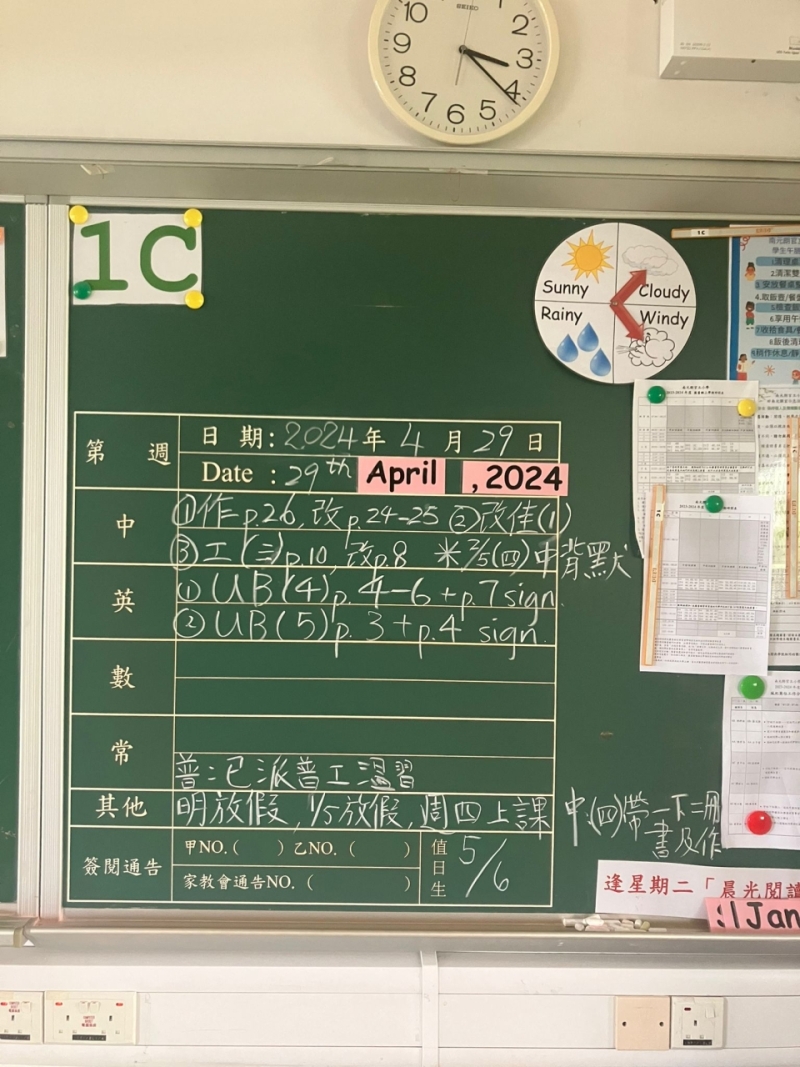 10
2
9
3
8
4
7
6
5
SEIKO
1C
Sunny
Cloudy
Rainy
Windy
1C
第 週
日 期: 2024年 4 月 29 日
Date : 29th April , 2024
中
①作p.26, 改p.24-25 ②改佳(1)
③工(三)p.10, 改p.8 米2/5(四)中背默
英
①UB(4)p.4-6+p.7 sign.
②UB(5)p.3+p.4 sign.
數
常
普:已派普工溫習
其他
明放假, 1/5放假, 週四上課
中:(四)帶一下二冊
書及作
簽閱通告
甲NO.( )乙NO.( )
家教會通告NO.( )
值日生
5/6
逢星期二「晨光閱讀
1Jan